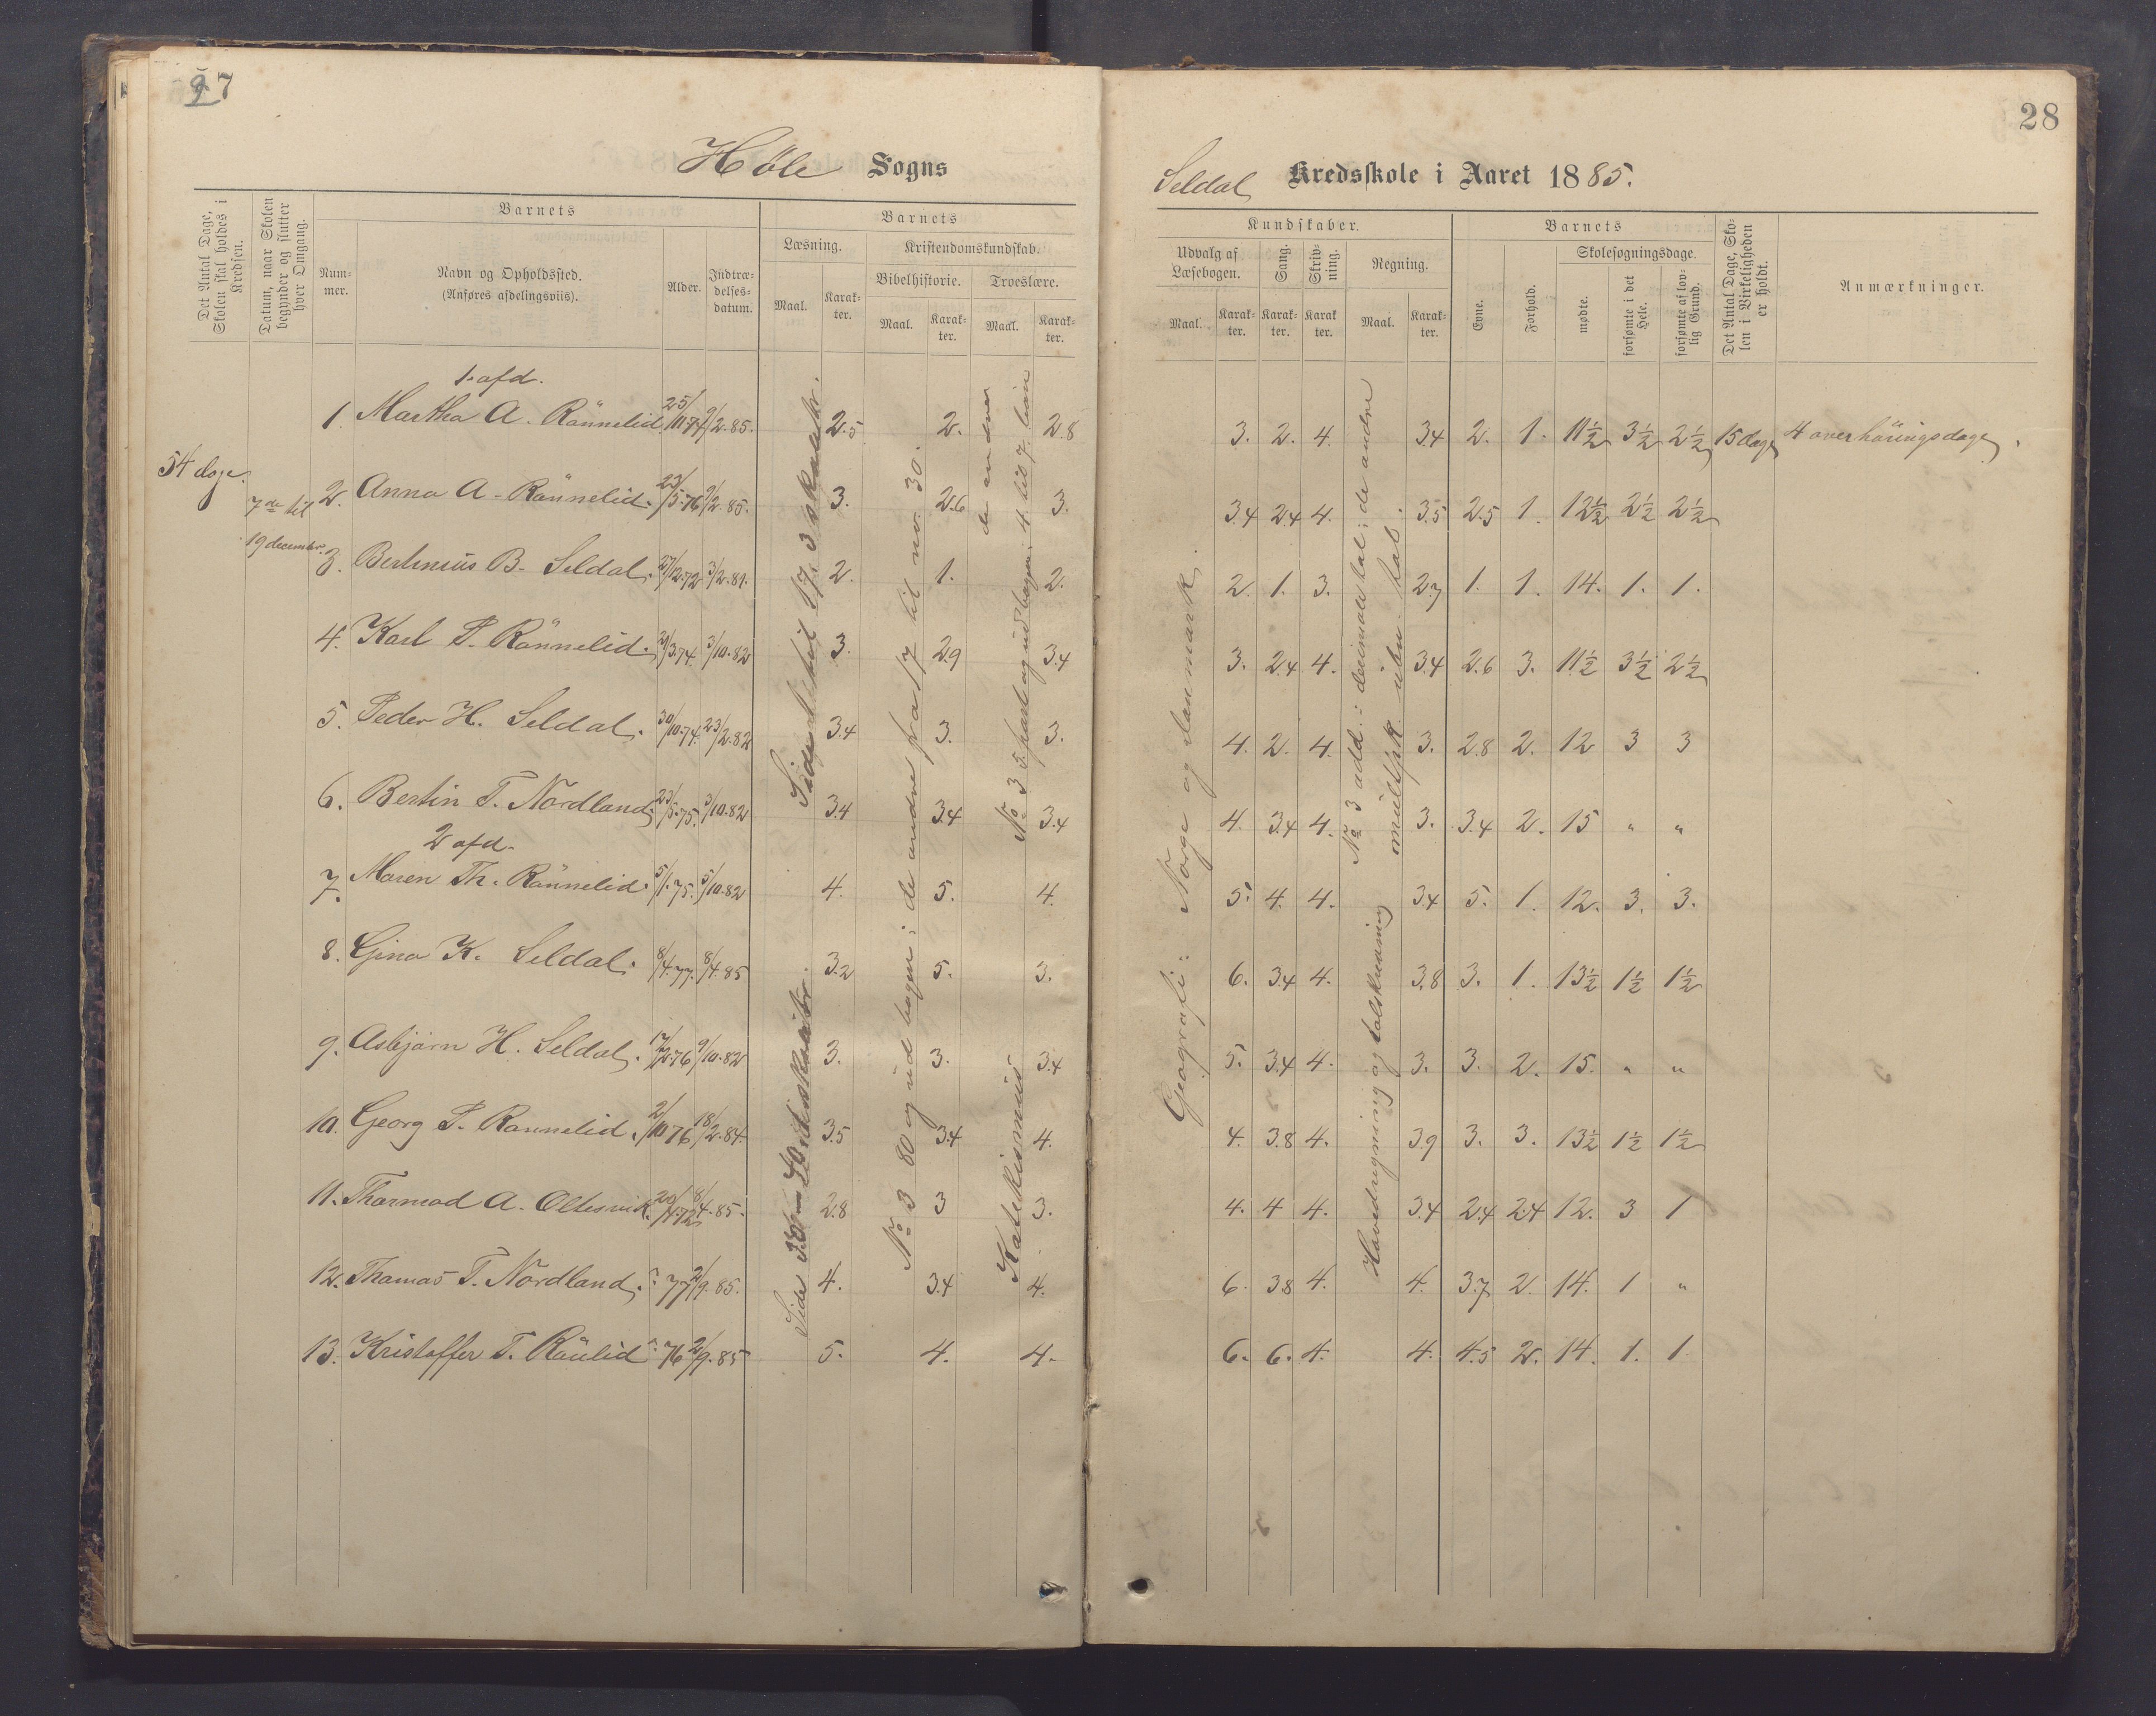 27
Høle Sogns
Det Antal Dage, Skolen skal holdes i Kredsen.
Datum, naar Skolen begynder og slutter hver Omgang.
Barnets
Num-
mer.
Navn og Opholdssted.
(Anføres afdelingsviis).
Alder.
Indtræ-
delses-
datum.
Barnets
Læsning.
Kristendomskundskab.
Bibelhistorie.
Troeslære.
Maal.
Karak-
ter.
Maal.
Karak-
ter.
Maal.
Karak-
ter.
1. afd.
1. Martha A. Rönnelid. 25/11.74 9/2.85. 2.5 2. 2.8
54 dage.
7de til
19 decembr.
2. Anna A. Rönnelid. 23/5.76 9/2.85. 3. 2.6 3.
3. Bertinius B. Seldal. 27/12.72 3/2.81. 2. 1. 2.
4. Karl P. Rönnelid. 29/3.74. 3/10.82 3. 2.9 3.4
5. Peder H. Seldal. 30/10.74. 23/2.82 3.4 3. 3.
6. Bertin T. Nordland. 23/5.75. 3/10.82 3.4 3.4 3.4
2 afd.
7. Maren Th. Rönnelid. 5/1.75. 5/10.82 4. 5. 4.
8. Gina K. Seldal. 8/4.77. 8/4.85 3.2 5. 3.
9. Asbjørn H. Seldal. 17/2.76 9/10.82 3. 3. 3.4
10. Georg P. Rønnelid. 2/10 76 18/2.84. 3.5 3.4 4.
11. Thormod A. Oltesvik. 20/4.72 8/4.85. 2.8 3 3.
12. Thomas T. Nordland. 77 2/9.85. 4. 3.4 4.
13. Kristoffer T. Röülid 76 2/9.85 5. 4. 4.
No 3 80 og ud bogen; de andre fra 57 til no. 30.
No 3 5 part og ud bogen; 4. til 7.
de andre
Katekismus
28
Seldal Kredsskole i Aaret 1885.
Kundskaber.
Udvalg af
Læsebogen.
Sang.
Skriv-
ning.
Regning.
Maal.
Karak-
ter.
Karak-
ter.
Karak
ter.
Maal.
Karak-
ter.
Barnets
Evne.
Forhold.
Skolesøgningsdage.
mødte.
forsømte i det Hele.
forsømte af lov-
lig Grund.
Det Antal Dage, Sko-
len i Virkeligheden
er holdt.
Anmærkninger.
3. 2. 4. 3.4 2. 1. 11½ 3½ 2½ 15 dage 4 overhöringsdage.
3.4 2.4 4. 3.5 2.5 1. 12½ 2½ 2½
2. 1. 3. 2.7 1. 1. 14. 1. 1.
3. 2.4 4. 3.4 2.6 3. 11½ 3½ 2½
4. 2. 4. 3. 2.8 2. 12 3 3
4. 3.4 4. 3. 3.4 2. 15 " "
5. 4. 4. 3.4 5. 1. 12. 3. 3.
6. 3.4 4. 3.8 3. 1. 13½ 1½ 1½
5. 3.4 4. 3. 3. 2. 15. " "
4. 3.8 4. 3.9 3. 3. 13½ 1½ 1½
4. 4 4. 3.4 2.4 2.4 12. 3 1
6. 3.8 4. 4. 3.7 2. 14. 1 "
6. 6. 4. 4. 4.5 2. 14. 1. 1
Geografi: Norge og Danmark.
No 3 add. decimaltal; de andre
multipl. uben. tal.
Hovedregning og talskrivning